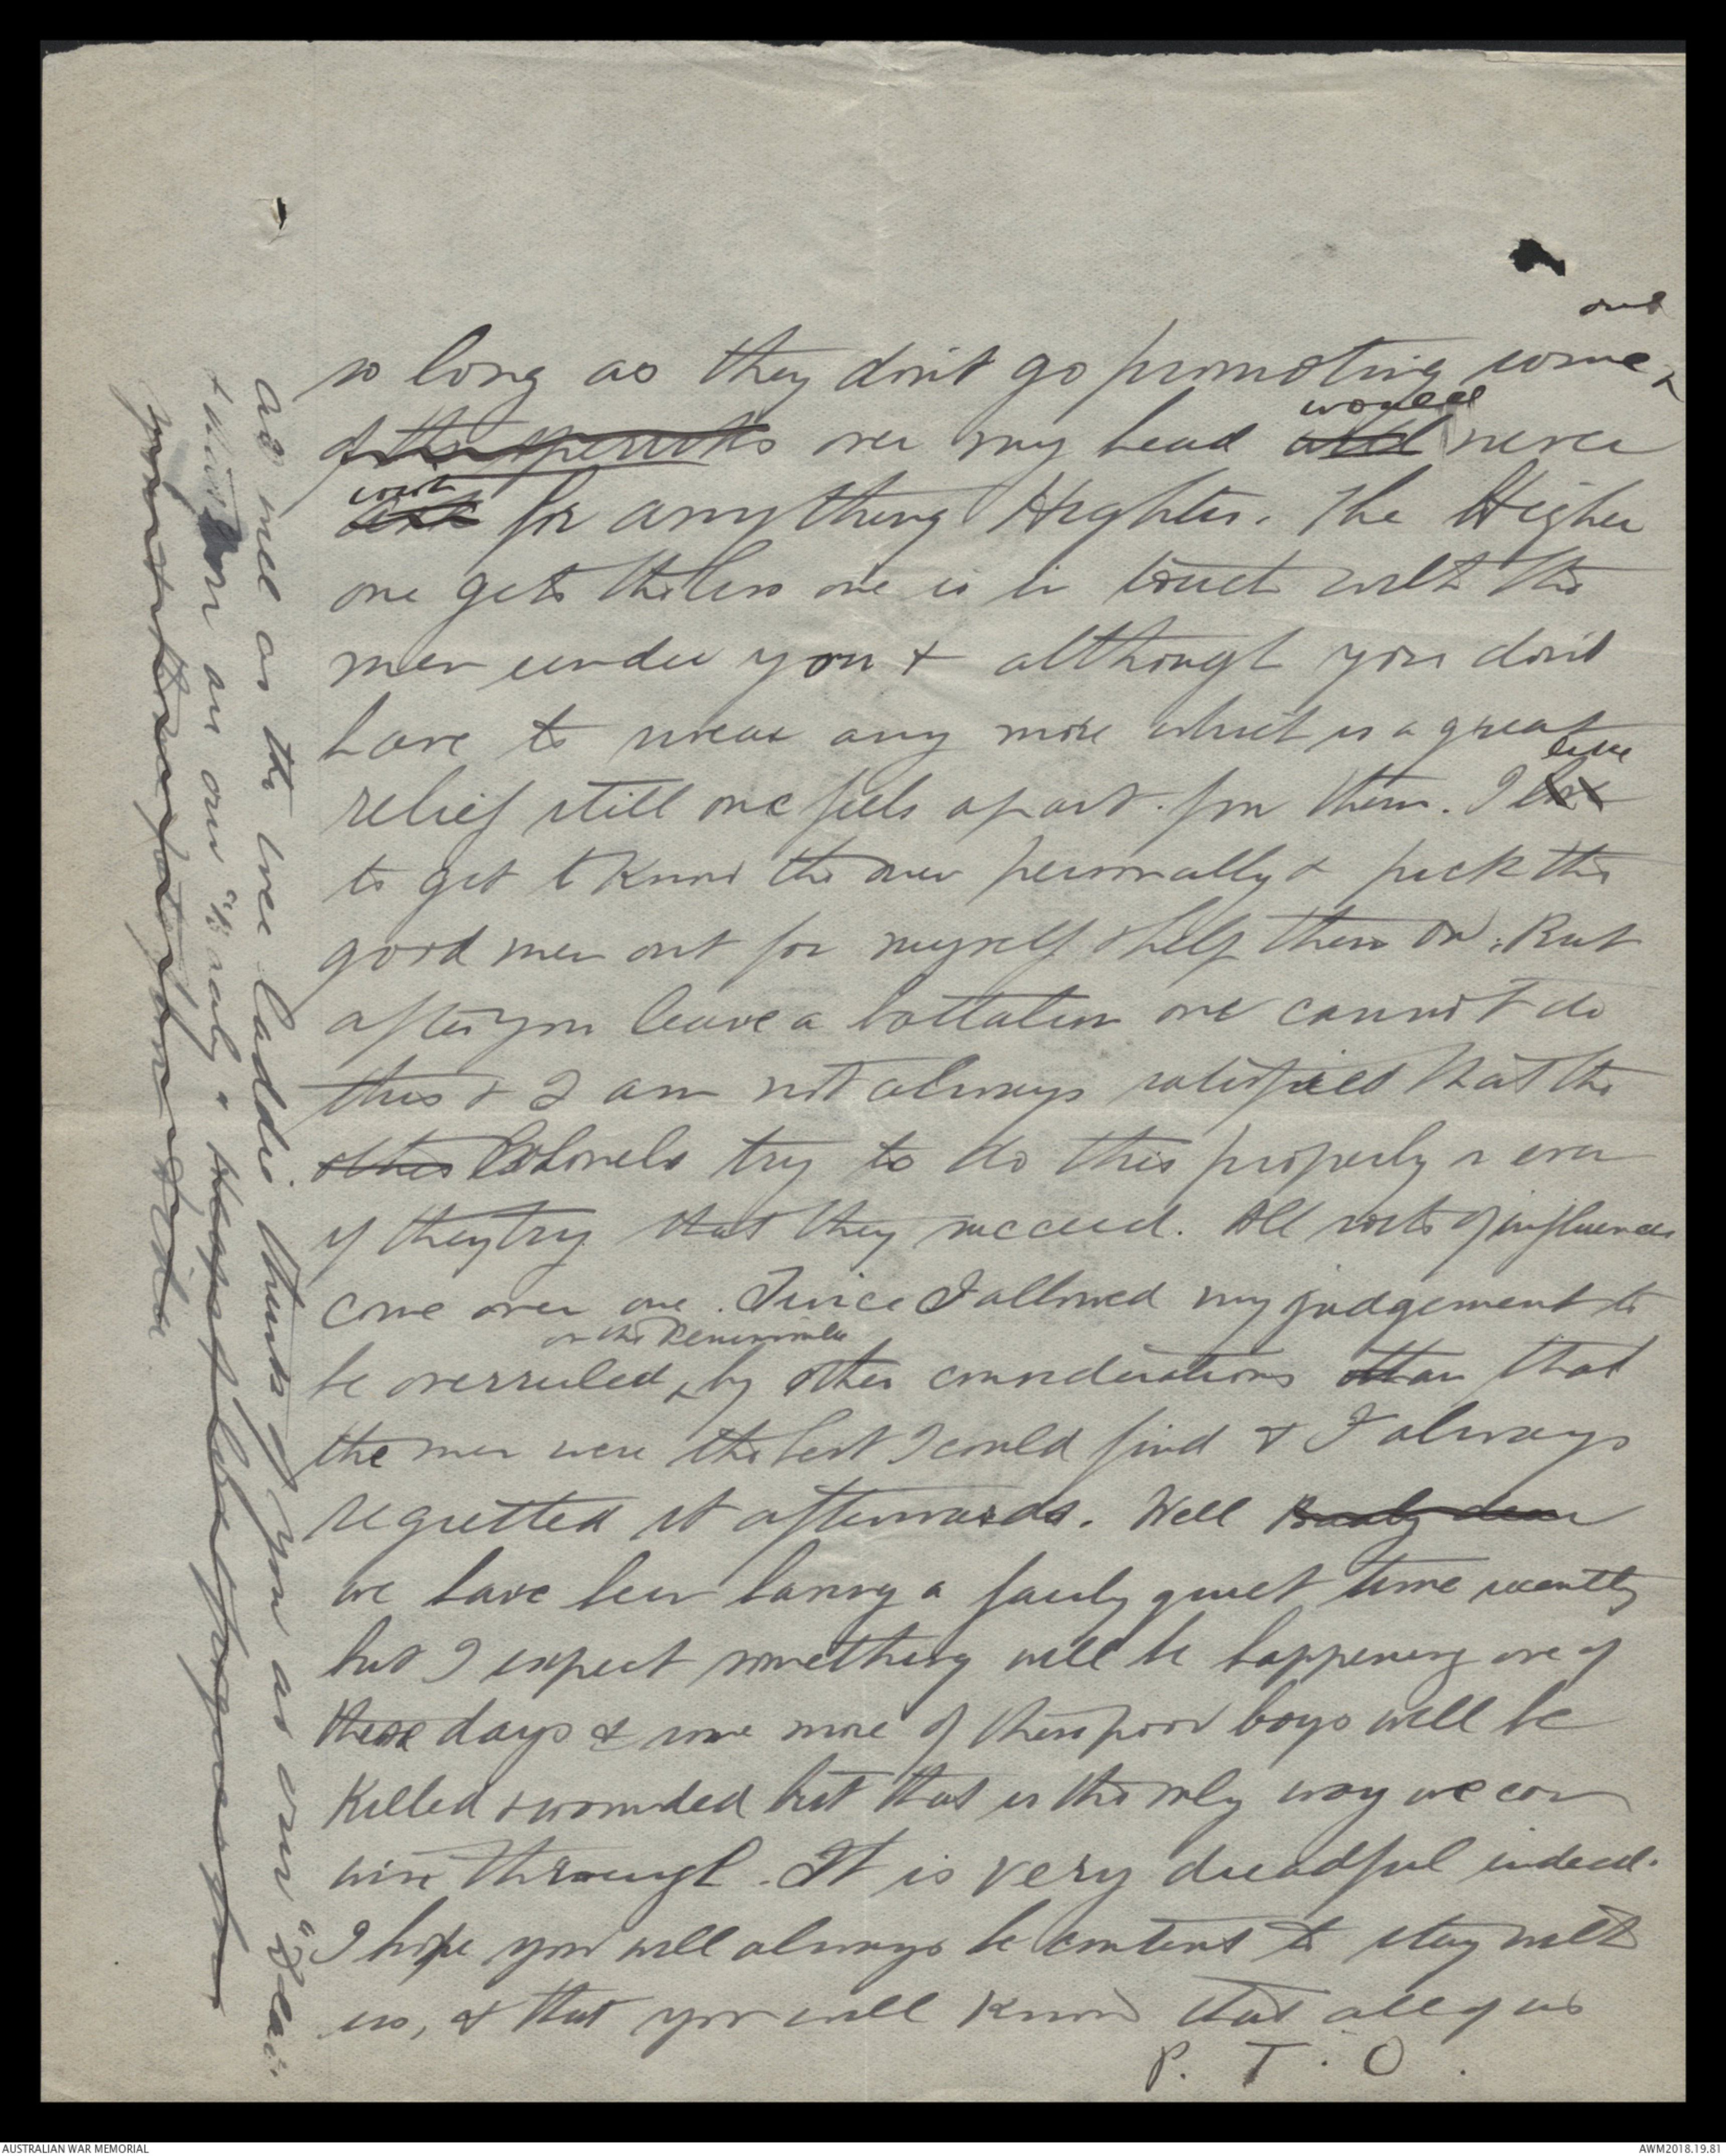 so long as they don't go promoting some one
of the sperrits over my head would never
wish for anything Higher. The Higher
one gets the less one is in touch with the
men under you & although you don't
have to swear any more which is a great
relief still one feels apart from them. I like
to get to know the men personally & pick the
good men out for myself & help them on. But
after you leave a battalion one cannot do
this & I am not always satisfied that the
other Colonels try to do this properly or even
if they try that they succeed. All sorts of influences
come over one. Twice I allowed my judgement to
be overruled on the Peninsula by other considerations than that
the men were the best I could find & I always
regretted it afterwards. Well Banly dear
we have been having a fairly quiet time recently
but I expect something will be happening one of
these days & some more of these poor boys will be
killed & wounded but that is the only way we can
win through. It is very dreadful indeed.
I hope you will always be content to stay with
us, & that you will know that all of us
P. T. O.
as well as the wee laddie thinks of you as our "Dear."
on as our own
AUSTRALIAN WAR MEMORIAL
AWM2018.19.81